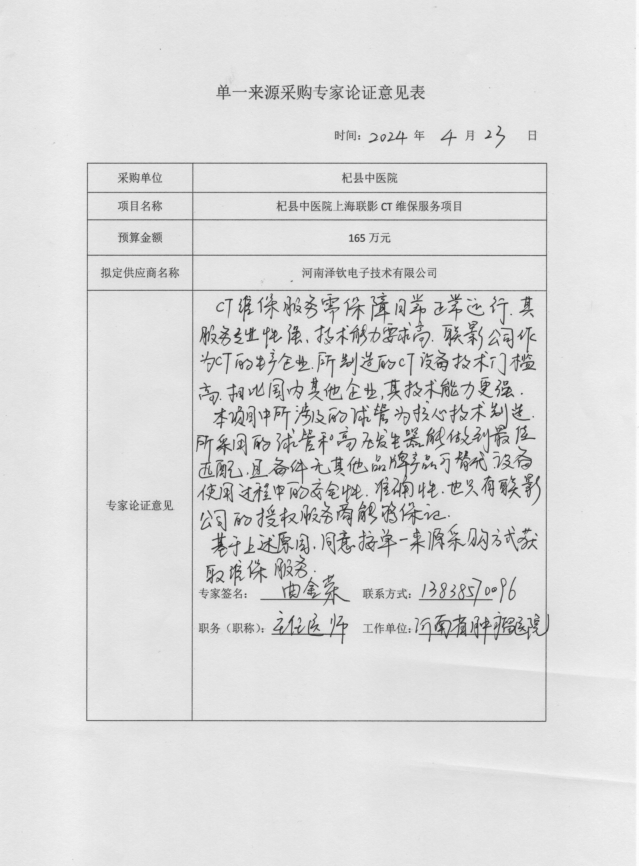 单一来源采购专家论证意见表
时间：2024 年 4 月 23 日
采购单位 杞县中医院
项目名称 杞县中医院上海联影 CT 维保服务项目
预算金额 165 万元
拟定供应商名称 河南泽钦电子技术有限公司
专家论证意见
CT维保服务需保障日常正常运行.其
服务专业性强、技术能力要求高.联影公司作
为CT的生产企业.所制造的CT设备技术门槛
高.相比国内其他企业,其技术能力更强.
本项目中所涉及的球管为核心技术制造.
所采用的球管和高压发生器能做到最佳
匹配.且备件无其他品牌产品可替代.设备
使用过程中的安全性.准确性.也只有联影
公司的授权服务商能够保证.
基于上述原因.同意按单一来源采购方式获
取维保服务.
专家签名： 曲金荣 联系方式：13838570096
职务（职称）：主任医师 工作单位：河南省肿瘤医院